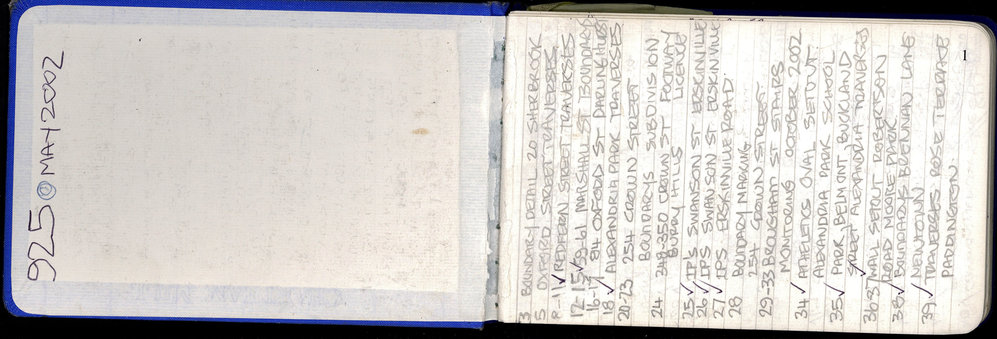 925 ① MAY 2002
1
3 BOUNDARY DETAIL 20 SHERBROOK
5 OXFORD STREET TRAVERSES
8-11 ✓ REDFERN STREET TRAVERSES
12-15 ✓ 59-61 MARSHALL ST BOUNDARY
16-17 84 OXFORD ST DARLINGHURST
18 ✓ ALEXANDRIA PARK TRAVERSES
20-23 254 CROWN STREET
BOUNDARYS SUBDIVISION
24 348-350 CROWN ST FOOTWAY
SURRY HILLS LICENCE
25 ✓ IPS SWANSON ST ERSKINVILLE
26 ✓ IPS SWANSON ST ERSKINVILLE
27 ✓ IPS ERSKINVILLE ROAD
28 BOUNDARY MARKING
254 CROWN STREET
29-33 BROUGHAM ST STAIRS
MONTORING OCTOBER 2002
34 ✓ ATHELETICS OVAL SETOUT
ALEXANDRIA PARK SCHOOL
35 ✓ PARK BELMONT, BUCKLAND
STREET ALEXANDRIA TRAVERSES
36-37 WALL SETOUT ROBERTSON
ROAD MOORE PARK
38 ✓ BOUNDARYS BRENNAN LANE
NEWTOWN
39 ✓ TRAVERSES ROSE TERRACE
PADDINGTON.